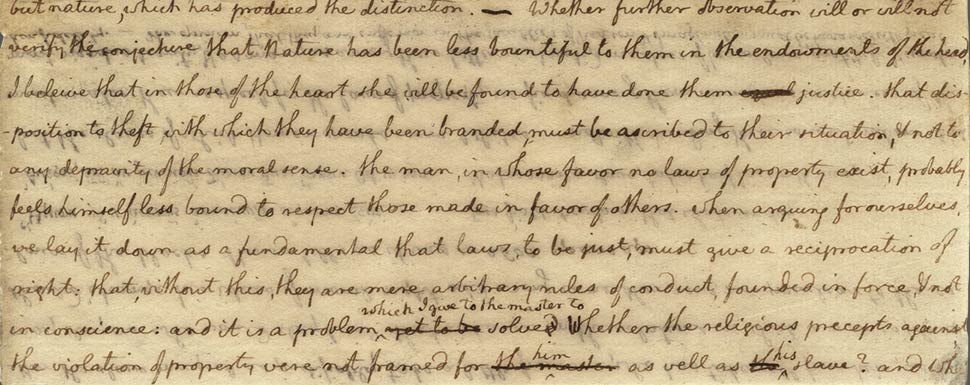 but nature, which has produced the distinction. — Whether further observation will or will not
verify the conjecture that Nature has been less bountiful to them in the endowments of the head,
I beleive that in those of the heart she will be found to have done them equal justice. that dis-
-position to theft with which they have been branded, must be ascribed to their situation, & not to
any depravity of the moral sense. the man, in whose favor no laws of property exist, probably
feels himself less bound to respect those made in favor of others. when arguing for ourselves,
we lay it down as a fundamental that laws, to be just, must give a reciprocation of
right: that, without this, they are mere arbitrary rules of conduct, founded in force, & not
which I give to the master to
in conscience: and it is a problem yet to be solved Whether the religious precepts against
him his
the violation of property were not framed for the master as well as slave? and wh